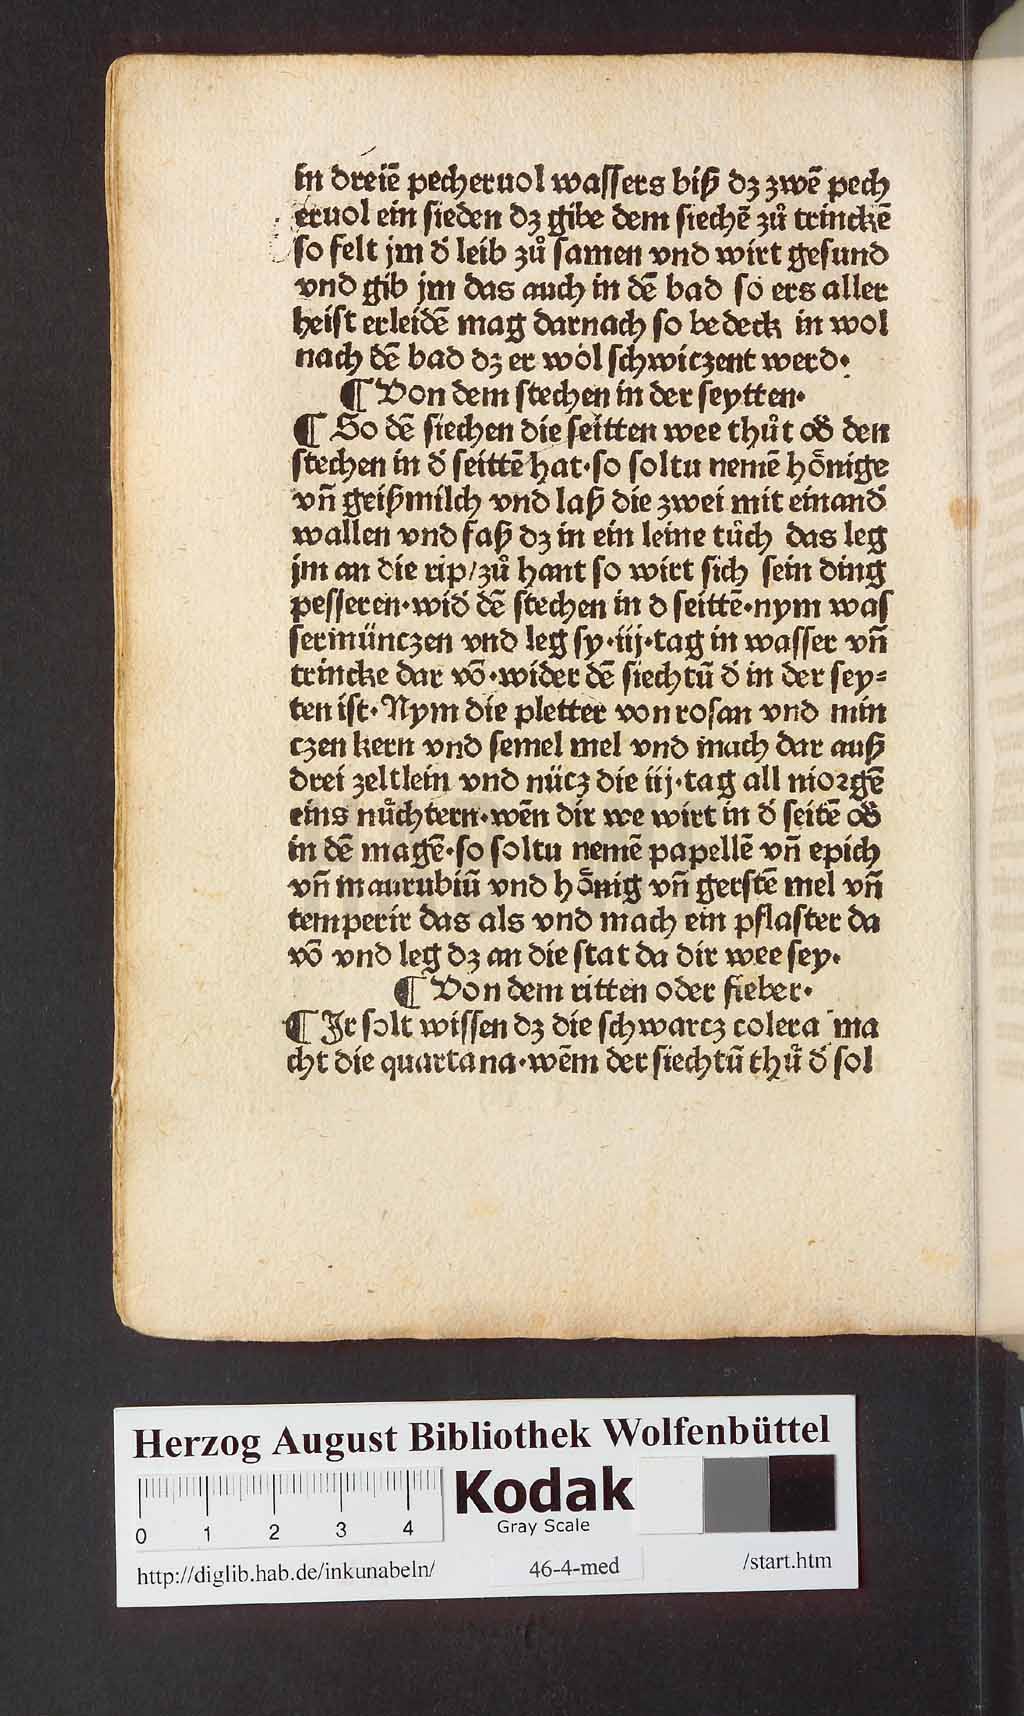 in dreiē pecheruol wassers biß dz zwē pech
eruol ein sieden dz gibe dem siechē zů trinckē
so felt jm d̕ leib zů samen vnd wirt gesund
vnd gib jm das auch in dē bad so ers aller
heist erleidē mag darnach so bedeck in wol
nach dē bad dz er wol schwiczent werd·
¶ Von dem stechen in der seytten·
¶ So dē siechen die seitten wee thůt od̕ den
stechen in d̕ seittē hat·so soltu nemē hönige
vn̄ geißmilch vnd laß die zwei mit einand̕
wallen vnd faß dz in ein leine tůch das leg
jm an die rip/zů hant so wirt sich sein ding
pesseren·wid̕ dē stechen in d seittē·nym was
sermünczen vnd leg sy·iij·tag in wasser vn̄
trincke dar vō·wider dē siechtū d̕ in der sey⸗
ten ist·Nym die pletter von rosan vnd min
czen kern vnd semel mel vnd mach dar auß
drei zeltlein vnd nücz die iij·tag all morgē
eins nůchtern·wēn dir we wirt in d̕ seitē od̕
in dē magē·so soltu nemē papellē vn̄ epich
vn̄ maurubiū vnd hönig vn̄ gerstē mel vn̄
temperir das als vnd mach ein pflaster da
vō vnd leg dz an die stat da dir wee sey·
¶ Von dem ritten oder fieber·
¶ Ir solt wissen dz die schwarcz colera ma
cht die quartana·wēm der siechtū thů d̕ sol
Herzog August Bibliothek Wolfenbüttel
Kodak
Gray Scale
0 1 2 3 4
http://diglib.hab.de/inkunabeln/ 46-4-med /start.htm